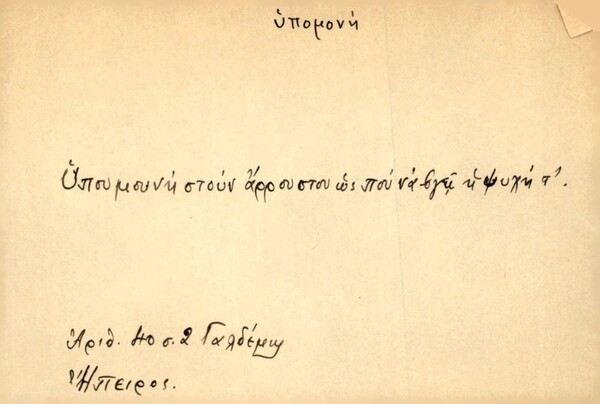 ὑπομονή
Ὑπουμουνή στούν ἄρρουστου ὡς πού νά βγεῖ ἡ ψυχή τ'.
Ἀριθ. 40 σ. 2 Γαλδέμη
Ἤπειρος.